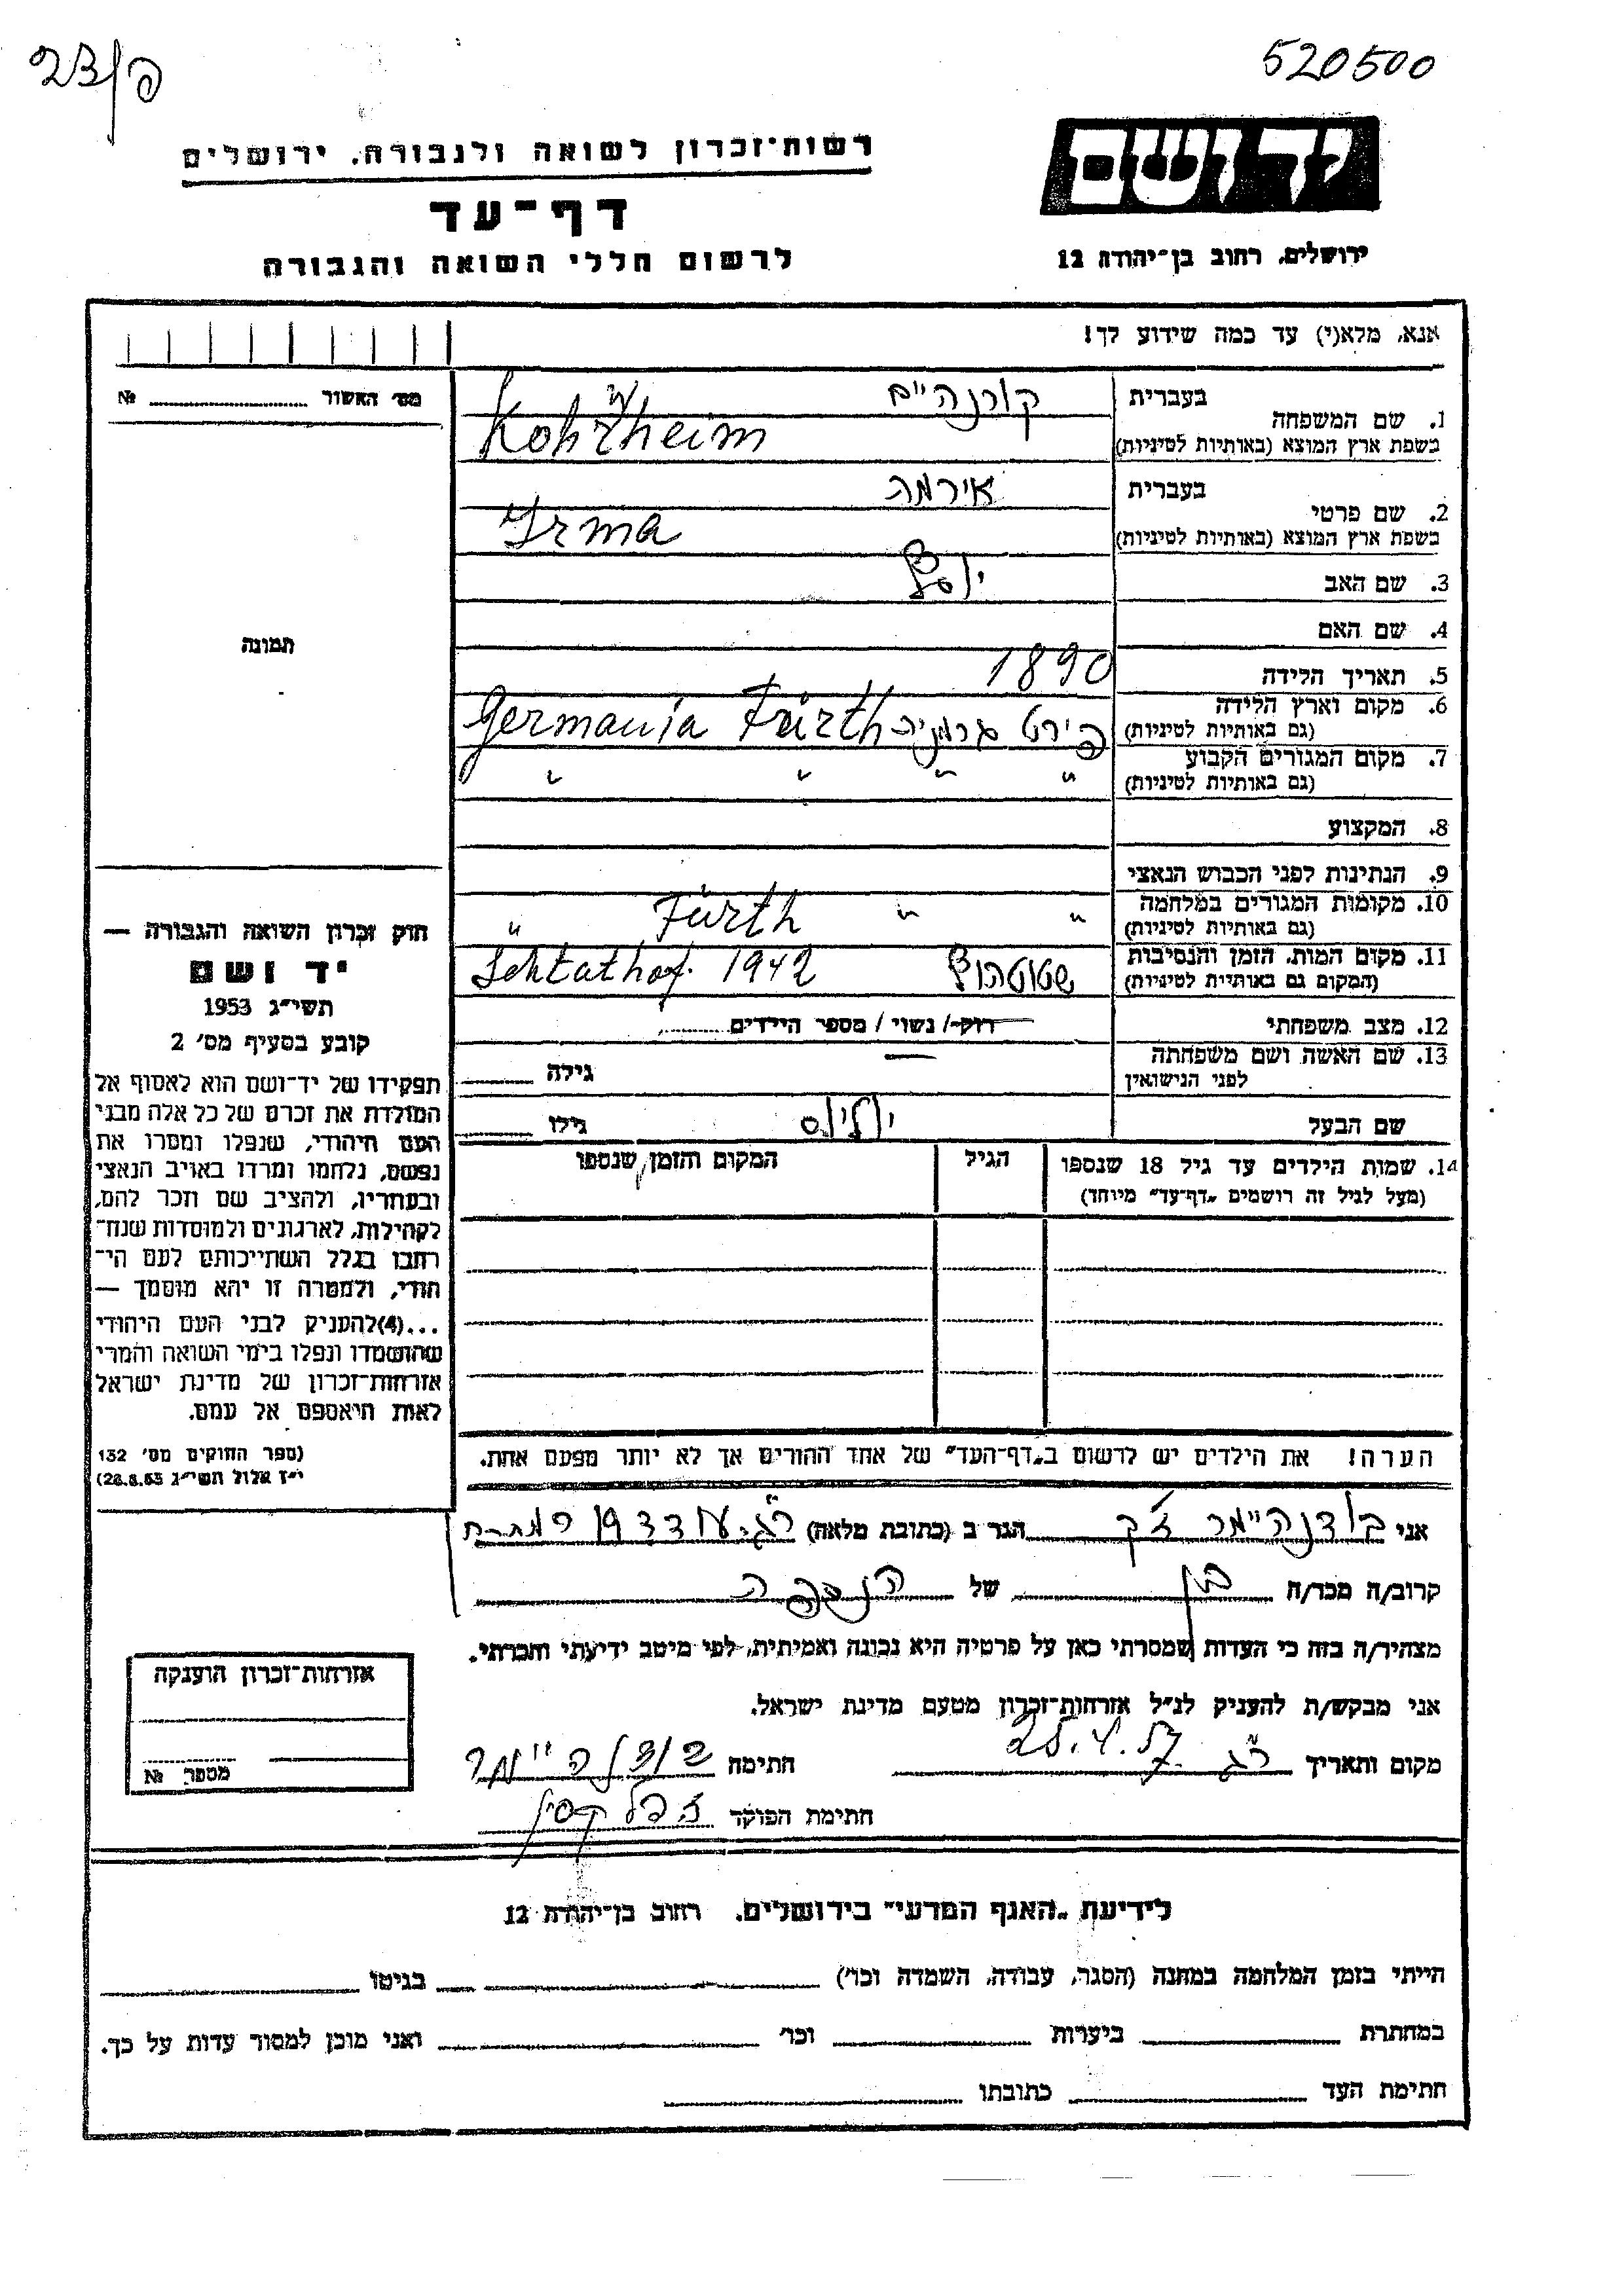 פ/23
520500
יד ושם
רשות־זכרון לשואה ולגבורה, ירושלים
דף־עד
לרשום חללי השואה והגבורה
ירושלים, רחוב בן־יהודה 12
אנא, מלא(י) עד כמה שידוע לך!
1. שם המשפחה
בעברית קורנהיים
בשפת ארץ המוצא (באותיות לטיניות) Kohrheim
2. שם פרטי
בעברית אירמה
בשפת ארץ המוצא (באותיות לטיניות) Irma
3. שם האב יוסף
4. שם האם
5. תאריך הלידה 1890
6. מקום וארץ הלידה
(גם באותיות לטיניות) פירט גרמניה Fürth Germania
7. מקום המגורים הקבוע
(גם באותיות לטיניות) " " " "
8. המקצוע
9. הנתינות לפני הכבוש הנאצי
10. מקומות המגורים במלחמה
(גם באותיות לטיניות) " " Fürth "
11. מקום המות, הזמן והנסיבות
(המקום גם באותיות לטיניות) שטוטהוף Schtathof. 1942
12. מצב משפחתי רוק/ נשוי / מספר הילדים
13. שם האשה ושם משפחתה
לפני הנישואין — גילה
שם הבעל יוליוס גילו
14. שמות הילדים עד גיל 18 שנספו
(מעל לגיל זה רושמים „דף־עד" מיוחד)
הגיל
המקום והזמן שנספו
הערה! את הילדים יש לרשום ב„דף־העד" של אחד ההורים אך לא יותר מפעם אחת.
מס׳ האשור №
תמונה
חוק זכרון השואה והגבורה —
יד ושם
תשי״ג 1953
קובע בסעיף מס׳ 2
תפקידו של יד־ושם הוא לאסוף אל
המולדת את זכרם של כל אלה מבני
העם היהודי, שנפלו ומסרו את
נפשם, נלחמו ומרדו באויב הנאצי
ובעוזריו, ולהציב שם וזכר להם,
לקהילות, לארגונים ולמוסדות שנח־
רבו בגלל השתייכותם לעם הי־
הודי, ולמטרה זו יהא מוסמך —
...(4)להעניק לבני העם היהודי
שהושמדו ונפלו בימי השואה והמרי
אזרחות־זכרון של מדינת ישראל
לאות היאספם אל עמם.
(ספר החוקים מס׳ 132
י״ז אלול תשי״ג 28.8.53)
אני בודנהיימר הגר ב (כתובת מלאה) ר״ג
קרוב/ה מכר/ה בן של הנספה
מצהיר/ה בזה כי העדות שמסרתי כאן על פרטיה היא נכונה ואמיתית, לפי מיטב ידיעתי והכרתי.
אני מבקש/ת להעניק לנ״ל אזרחות־זכרון מטעם מדינת ישראל.
מקום ותאריך ר״ג 25.4.57 חתימה בודנהיימר
חתימת הפוקד
אזרחות־זכרון הוענקה
מספר №
לידיעת „האגף המדעי" בירושלים, רחוב בן־יהודה 12
הייתי בזמן המלחמה במחנה (הסגר, עבודה, השמדה וכו׳) בגיטו
במחתרת ביערות וכו׳ ואני מוכן למסור עדות על כך.
חתימת העד כתובתו